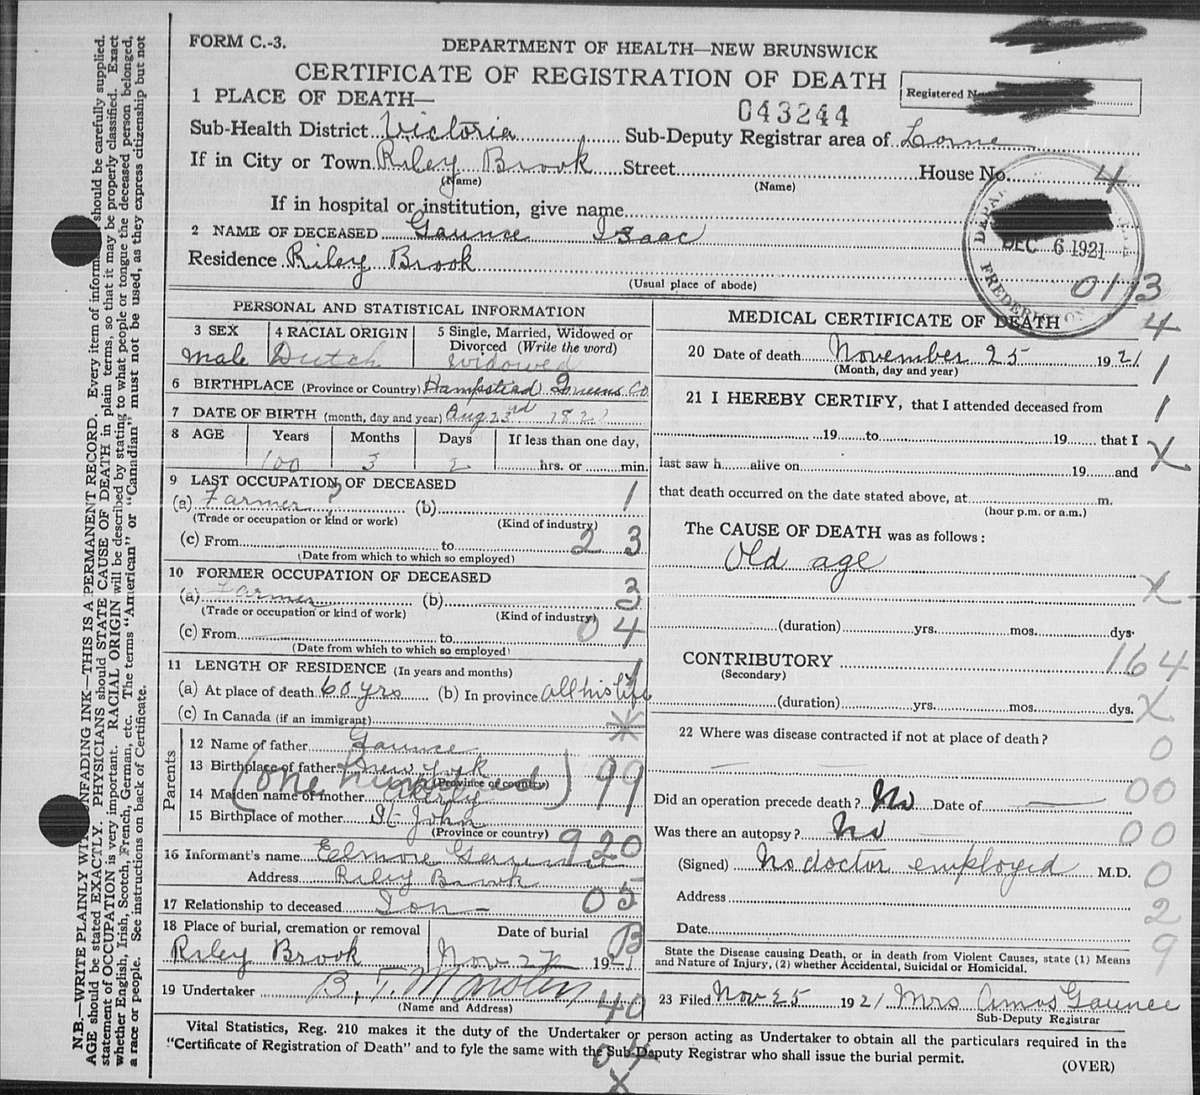 FORM C.-3.
DEPARTMENT OF HEALTH—NEW BRUNSWICK
CERTIFICATE OF REGISTRATION OF DEATH
Registered No.
043244
1 PLACE OF DEATH—
Sub-Health District Victoria Sub-Deputy Registrar area of Lorne
If in City or Town Riley Brook Street House No.
(Name) (Name)
4
If in hospital or institution, give name
2 NAME OF DECEASED Gaunce Isaac
DEC 6 1921
Residence Riley Brook
(Usual place of abode)
0113
PERSONAL AND STATISTICAL INFORMATION
3 SEX 4 RACIAL ORIGIN 5 Single, Married, Widowed or
Divorced (Write the word)
Male Dutch Widowed
6 BIRTHPLACE (Province or Country) Hampstead Queens Co
7 DATE OF BIRTH (month, day and year) Aug 23rd 1821
8 AGE Years Months Days If less than one day,
100 3 2 hrs. or min.
9 LAST OCCUPATION OF DECEASED
(a) Farmer ? (b) 1
(Trade or occupation or kind or work) (Kind of industry)
(c) From to 2 3
(Date from which to which so employed)
10 FORMER OCCUPATION OF DECEASED
(a) Farmer (b) 3
(Trade or occupation or kind of work) (Kind of industry)
(c) From to 0 4
(Date from which to which so employed)
11 LENGTH OF RESIDENCE (In years and months) 1
(a) At place of death 60 yrs (b) In province all his life
(c) In Canada (if an immigrant)
Parents
12 Name of father Gaunce
13 Birthplace of father New York 99
(Province or country)
(one hundred)
14 Maiden name of mother
15 Birthplace of mother St John
(Province or country) 920
16 Informant's name Elmore
Address Riley Brook
17 Relationship to deceased Son 05
18 Place of burial, cremation or removal Date of burial
Riley Brook Nov 27 1921
B
19 Undertaker B. T.
(Name and Address) 40
MEDICAL CERTIFICATE OF DEATH
4
20 Date of death November 25 1921
(Month, day and year)
1
21 I HEREBY CERTIFY, that I attended deceased from
1
19 to 19 that I
X
last saw h alive on 19 and
that death occurred on the date stated above, at m.
(hour p.m. or a.m.)
The CAUSE OF DEATH was as follows:
Old age
X
(duration) yrs. mos. dys.
CONTRIBUTORY 164
(Secondary)
(duration) yrs. mos. dys.
X
22 Where was disease contracted if not at place of death?
0
00
Did an operation precede death? No Date of
Was there an autopsy? No
00
(Signed) No doctor employed M.D.
0
Address
2
Date
9
State the Disease causing Death, or in death from Violent Causes, state (1) Means
and Nature of Injury, (2) whether Accidental, Suicidal or Homicidal.
23 Filed Nov 25 1921 Mrs Amos Gaunce
Sub-Deputy Registrar
Vital Statistics, Reg. 210 makes it the duty of the Undertaker or person acting as Undertaker to obtain all the particulars required in the
"Certificate of Registration of Death" and to fyle the same with the Sub-Deputy Registrar who shall issue the burial permit.
(OVER)
04
X
N.B.—WRITE PLAINLY WITH UNFADING INK—THIS IS A PERMANENT RECORD. Every item of information should be carefully supplied.
AGE should be stated EXACTLY. PHYSICIANS should STATE CAUSE OF DEATH in plain terms, so that it may be properly classified. Exact
statement of OCCUPATION is very important. RACIAL ORIGIN will be described by stating to what people or tongue the deceased person belonged,
whether English, Irish, Scotch, French, German, etc. The terms "American" or "Canadian" must not be used, as they express citizenship but not
a race or people. See instructions on back of Certificate.